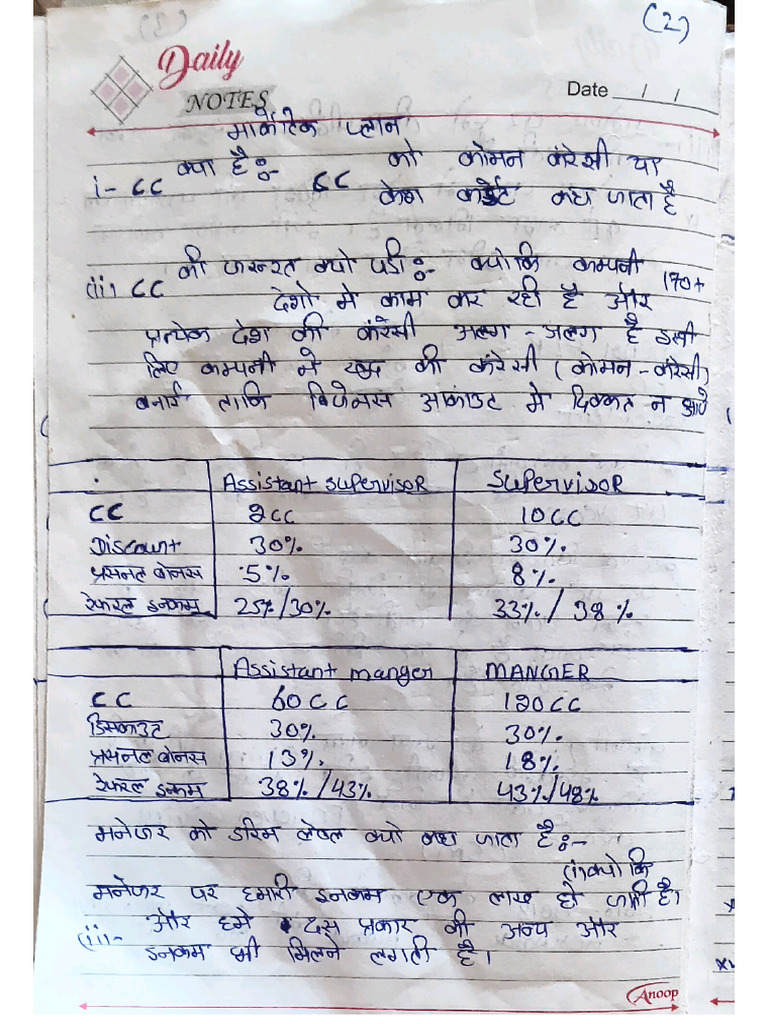 (2)
Daily
NOTES
Date __/__/__
मार्केटिंक प्लान
i- CC क्या है:- CC को कोमन कंरेसी या
केश क्रेडिट कहा जाता है
(ii) CC की जरूरत क्यो पडी:- क्योकि कम्पनी 170+
देशो मे काम कर रही है और
प्रत्येक देश की कंरेसी अलग-अलग है इसी
लिए कम्पनी ने खुद की कंरेसी (कोमन-कंरेसी)
बनाई ताकि बिजेनस आकांउट मे दिक्कत न आऐ
Assistant supervisor Supervisor
CC 2CC 10CC
Discount 30% 30%.
प्रसनल बोनस 5% 8%.
रेफरल इनकम 25%/30% 33%/38%
Assistant manger MANGER
CC 60CC 120CC
डिसकाउट 30% 30%.
प्रसनल बोनस 13%. 18%.
रेफरल इनकम 38%/43% 43%/48%
मनेजर को डरिम लेबल क्यो कहा जाता है:-
(i) क्यो कि
मनेजर पर हमारी इनकम एक लाख हो जाती है।
(ii)- और हमे दस प्रकार की अन्य और
इनकम भी मिलने लगती है।
Anoop